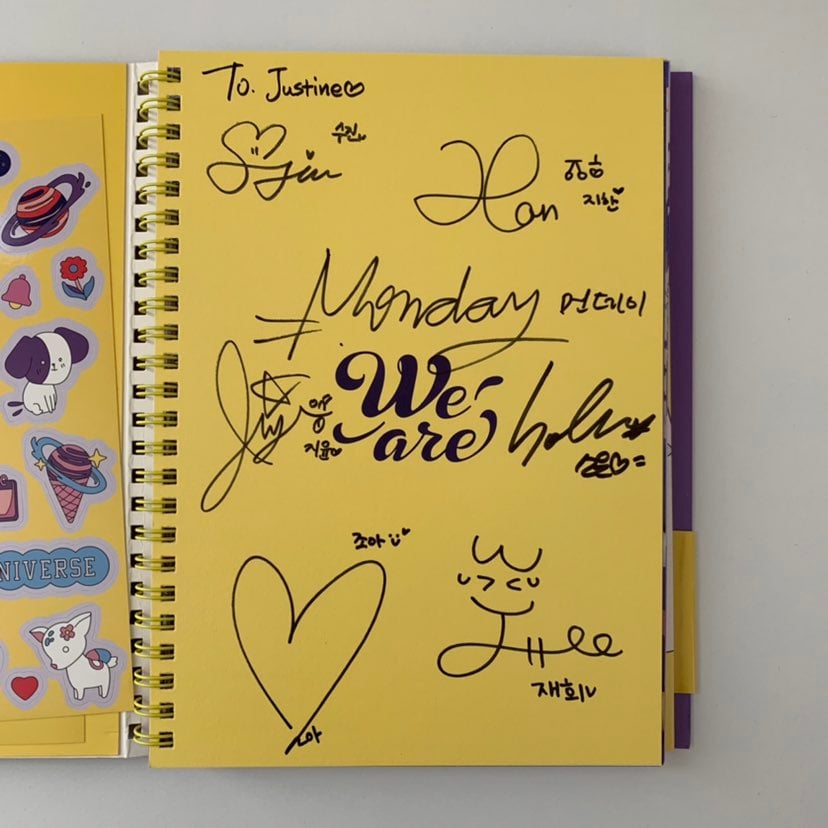 To. Justine♡
Sujin
수진
Han
지한
Monday
먼데이
We
are
지윤
소은
조아
Jaehee
재희
아
NIVERSE